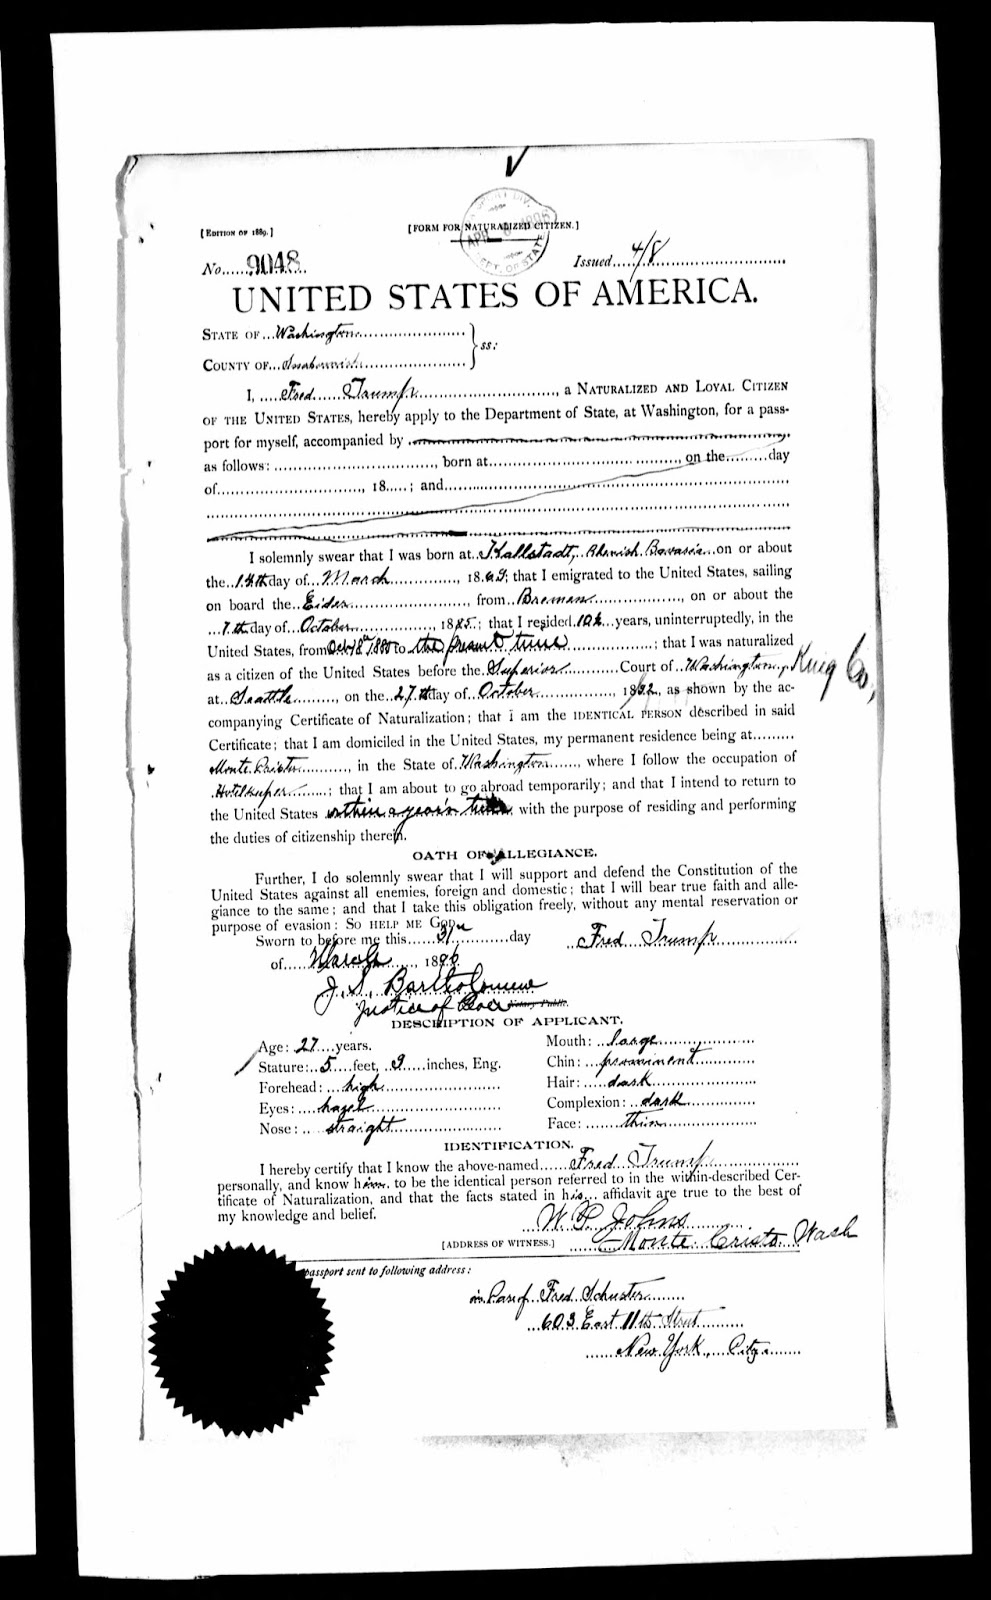 PASSPORT DIV.
APR 8 1896
DEPT. OF STATE
[EDITION OF 1889.]
[FORM FOR NATURALIZED CITIZEN.]
No. 9048
Issued 4/8
UNITED STATES OF AMERICA.
STATE OF Washington
COUNTY OF Snohomish } ss:
I, Fred Trump, a NATURALIZED AND LOYAL CITIZEN
OF THE UNITED STATES, hereby apply to the Department of State, at Washington, for a pass-
port for myself, accompanied by
as follows: , born at , on the day
of , 18 ; and
I solemnly swear that I was born at Kallstadt, Rhenish Bavaria on or about
the 14th day of March, 1869; that I emigrated to the United States, sailing
on board the Eider, from Bremen, on or about the
7th day of October, 1885; that I resided 10½ years, uninterruptedly, in the
United States, from 1885 to the present time; that I was naturalized
as a citizen of the United States before the Superior Court of Washington, King Co,
at Seattle, on the 27th day of October, 1892, as shown by the ac-
companying Certificate of Naturalization; that I am the IDENTICAL PERSON described in said
Certificate; that I am domiciled in the United States, my permanent residence being at
Monte Cristo, in the State of Washington, where I follow the occupation of
Hotelkeeper; that I am about to go abroad temporarily; and that I intend to return to
the United States within a year's time with the purpose of residing and performing
the duties of citizenship therein.
OATH OF ALLEGIANCE.
Further, I do solemnly swear that I will support and defend the Constitution of the
United States against all enemies, foreign and domestic; that I will bear true faith and alle-
giance to the same; and that I take this obligation freely, without any mental reservation or
purpose of evasion: SO HELP ME GOD.
Sworn to before me this 31st day Fred Trump
of March, 1896
J. S. Bartholomew
Justice of Peace Notary Public.
DESCRIPTION OF APPLICANT.
Age: 27 years. Mouth: large
Stature: 5 feet, 9 inches, Eng. Chin: prominent
Forehead: high Hair: dark
Eyes: hazel Complexion: dark
Nose: straight Face: thin
IDENTIFICATION.
I hereby certify that I know the above-named Fred Trump
personally, and know him to be the identical person referred to in the within-described Cer-
tificate of Naturalization, and that the facts stated in his affidavit are true to the best of
my knowledge and belief.
W P Johns
[ADDRESS OF WITNESS.] Monte Cristo Wash
passport sent to following address:
in Care of Fred Schuster
603 East 11th Street
New York, City.